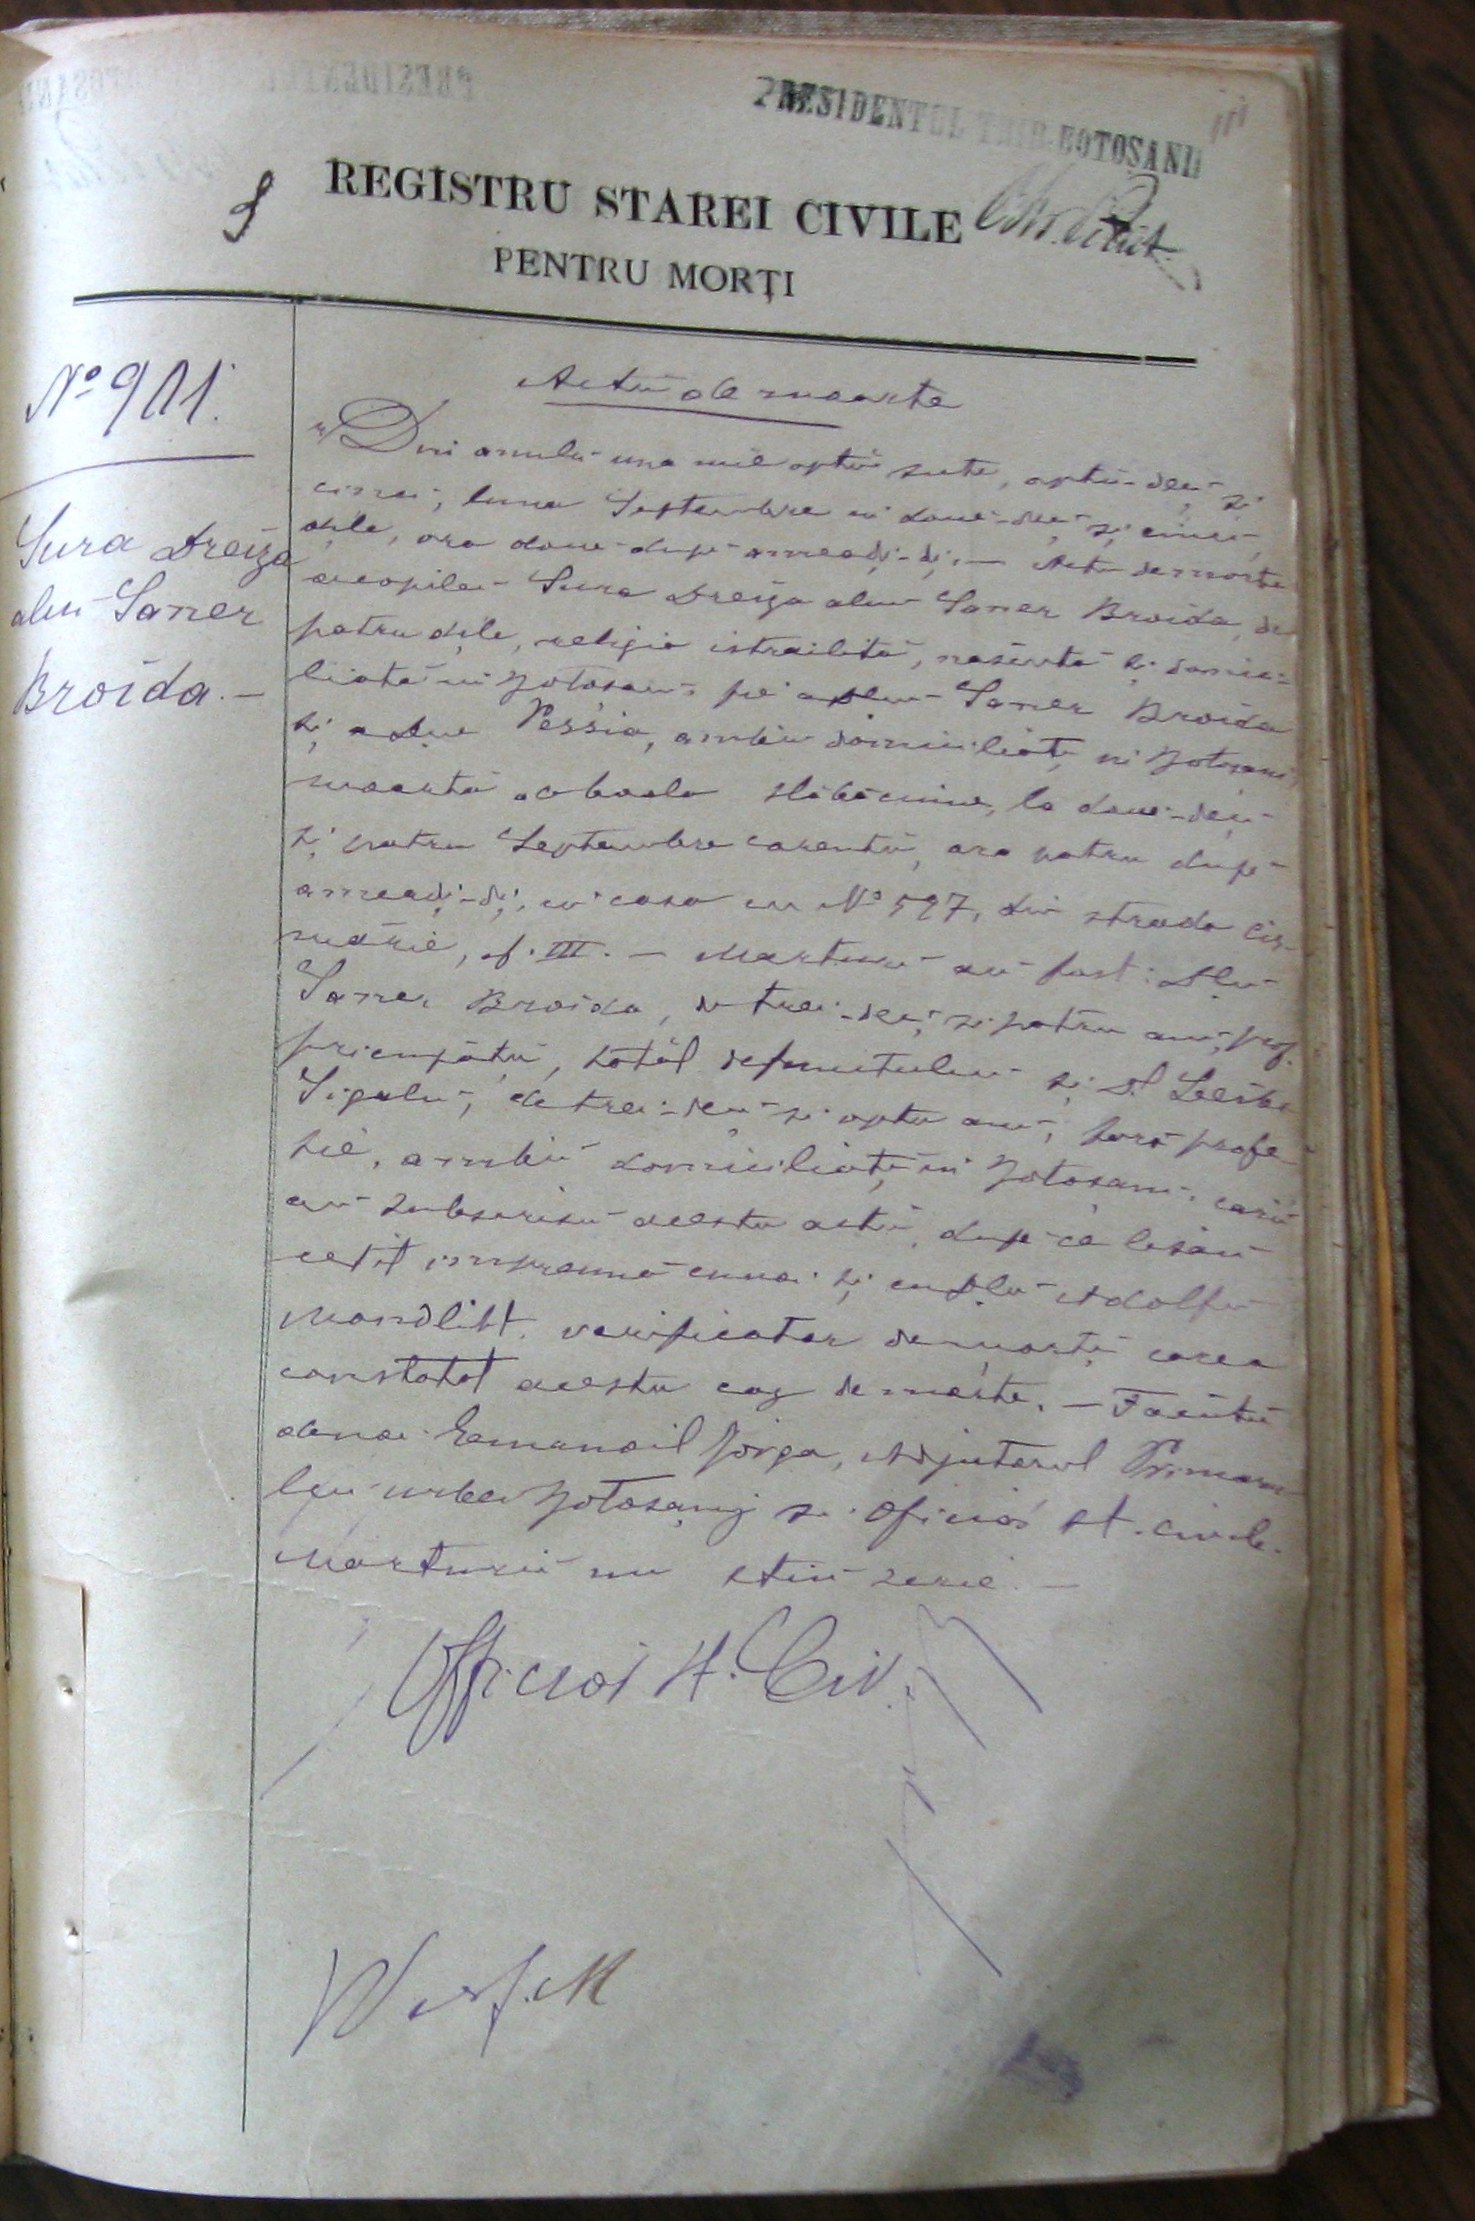 PRESIDENTUL TRIB. BOTOȘANI
REGISTRU STAREI CIVILE
PENTRU MORȚI
No 901.
Sura Dreiza
alui Saner
Broida. —
Actu de moarte
Din anulu una mie optu sute, optu-deci și
cinci, luna Septembre in doue-deci și cinci
dile, ora doue dupe ameadi-di. — Actu de morte
a copilei Sura Dreiza alui Saner Broida, de
patru dile, religia israilită, născută și domici-
liată in Botosani, fie a Dlui Saner Broida
și a Dnei Pessia, ambii domiciliați in Botosani,
moartă de boala slăbiciune, la doue-deci
și patru Septembre corentu, ora patru dupe
ameadi-di, in casa cu No 597, din strada Cis-
măriei, f. III. — Marturi au fost: Dlu
Saner Broida, de trei-deci și patru ani, prof.
pricupțu, totăl defunctului și Dl Leiba
Sigalu, de trei-deci și optu ani, fără profe-
sie, ambii domiciliați in Botosani, carii
au subscrisu acestu actu, dupe ce li s'au
cetit impreună cu noi și cu Dlu Adolfu
Mandlitt. verificator de morți care a
constatat acestu caz de moarte. — Facutu
de noi Emanoil Jorga, Ajutorul Primaru-
lui urbei Botosani și oficial st. civile.
Marturii nu știu scrie. —
Officiai st. Civ.
V. M